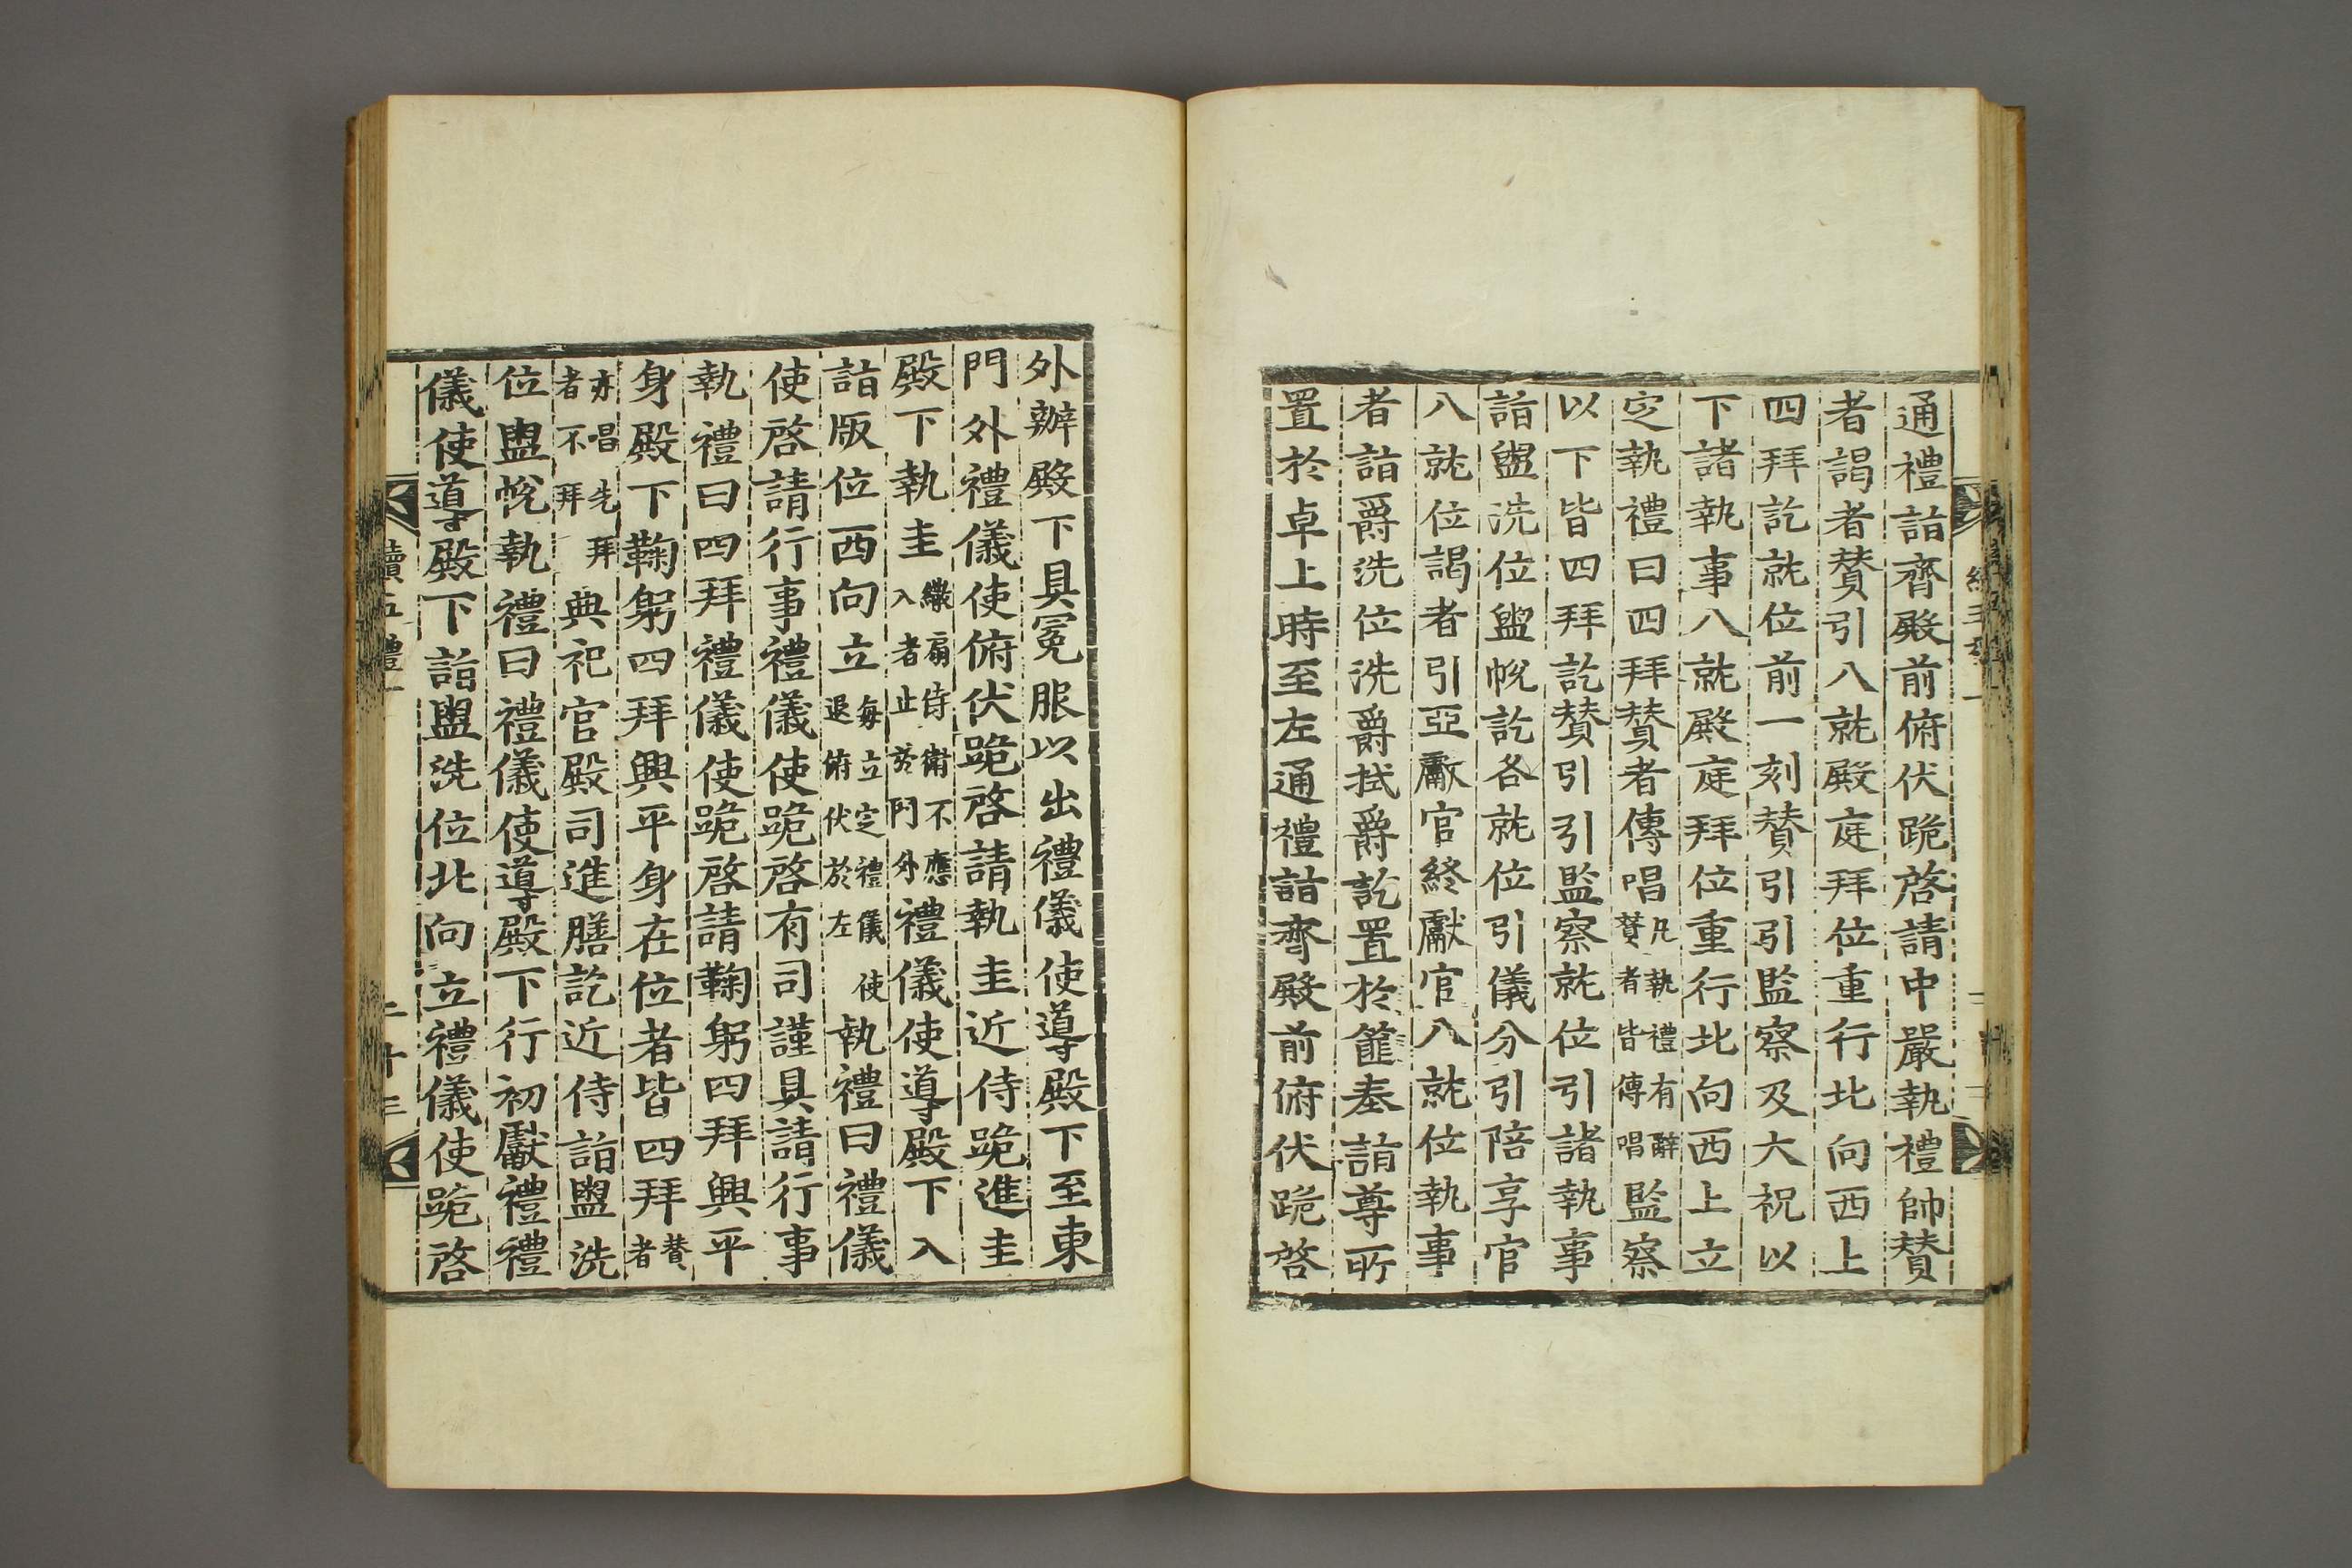 通禮詣齊殿前俯伏跪啓請中嚴執禮帥贊
者謁者贊引入就殿庭拜位重行北向西上
四拜訖就位前一刻贊引引監察及大祝以
下諸執事入就殿庭拜位重行北向西上立
定執禮曰四拜贊者傳唱凡執禮有辭贊者皆傳唱監察
以下皆四拜訖贊引引監察就位引諸執事
詣盥洗位盥帨訖各就位引儀分引陪享官
入就位謁者引亞獻官終獻官入就位執事
者詣爵洗位洗爵拭爵訖置於篚奉詣尊所
置於卓上時至左通禮詣齊殿前俯伏跪啓
外辦殿下具冕服以出禮儀使導殿下至東
門外禮儀使俯伏跪啓請執圭近侍跪進圭
殿下執圭繖扇侍衛不應入者止於門外禮儀使導殿下入
詣版位西向立每立定禮儀使退俯伏於左執禮曰禮儀
使啓請行事禮儀使跪啓有司謹具請行事
執禮曰四拜禮儀使跪啓請鞠躬四拜興平
身殿下鞠躬四拜興平身在位者皆四拜贊者
亦唱先拜者不拜典祀官殿司進膳訖近侍詣盥洗
位盥帨執禮曰禮儀使導殿下行初獻禮禮
儀使導殿下詣盥洗位北向立禮儀使跪啓
續五禮
二十三